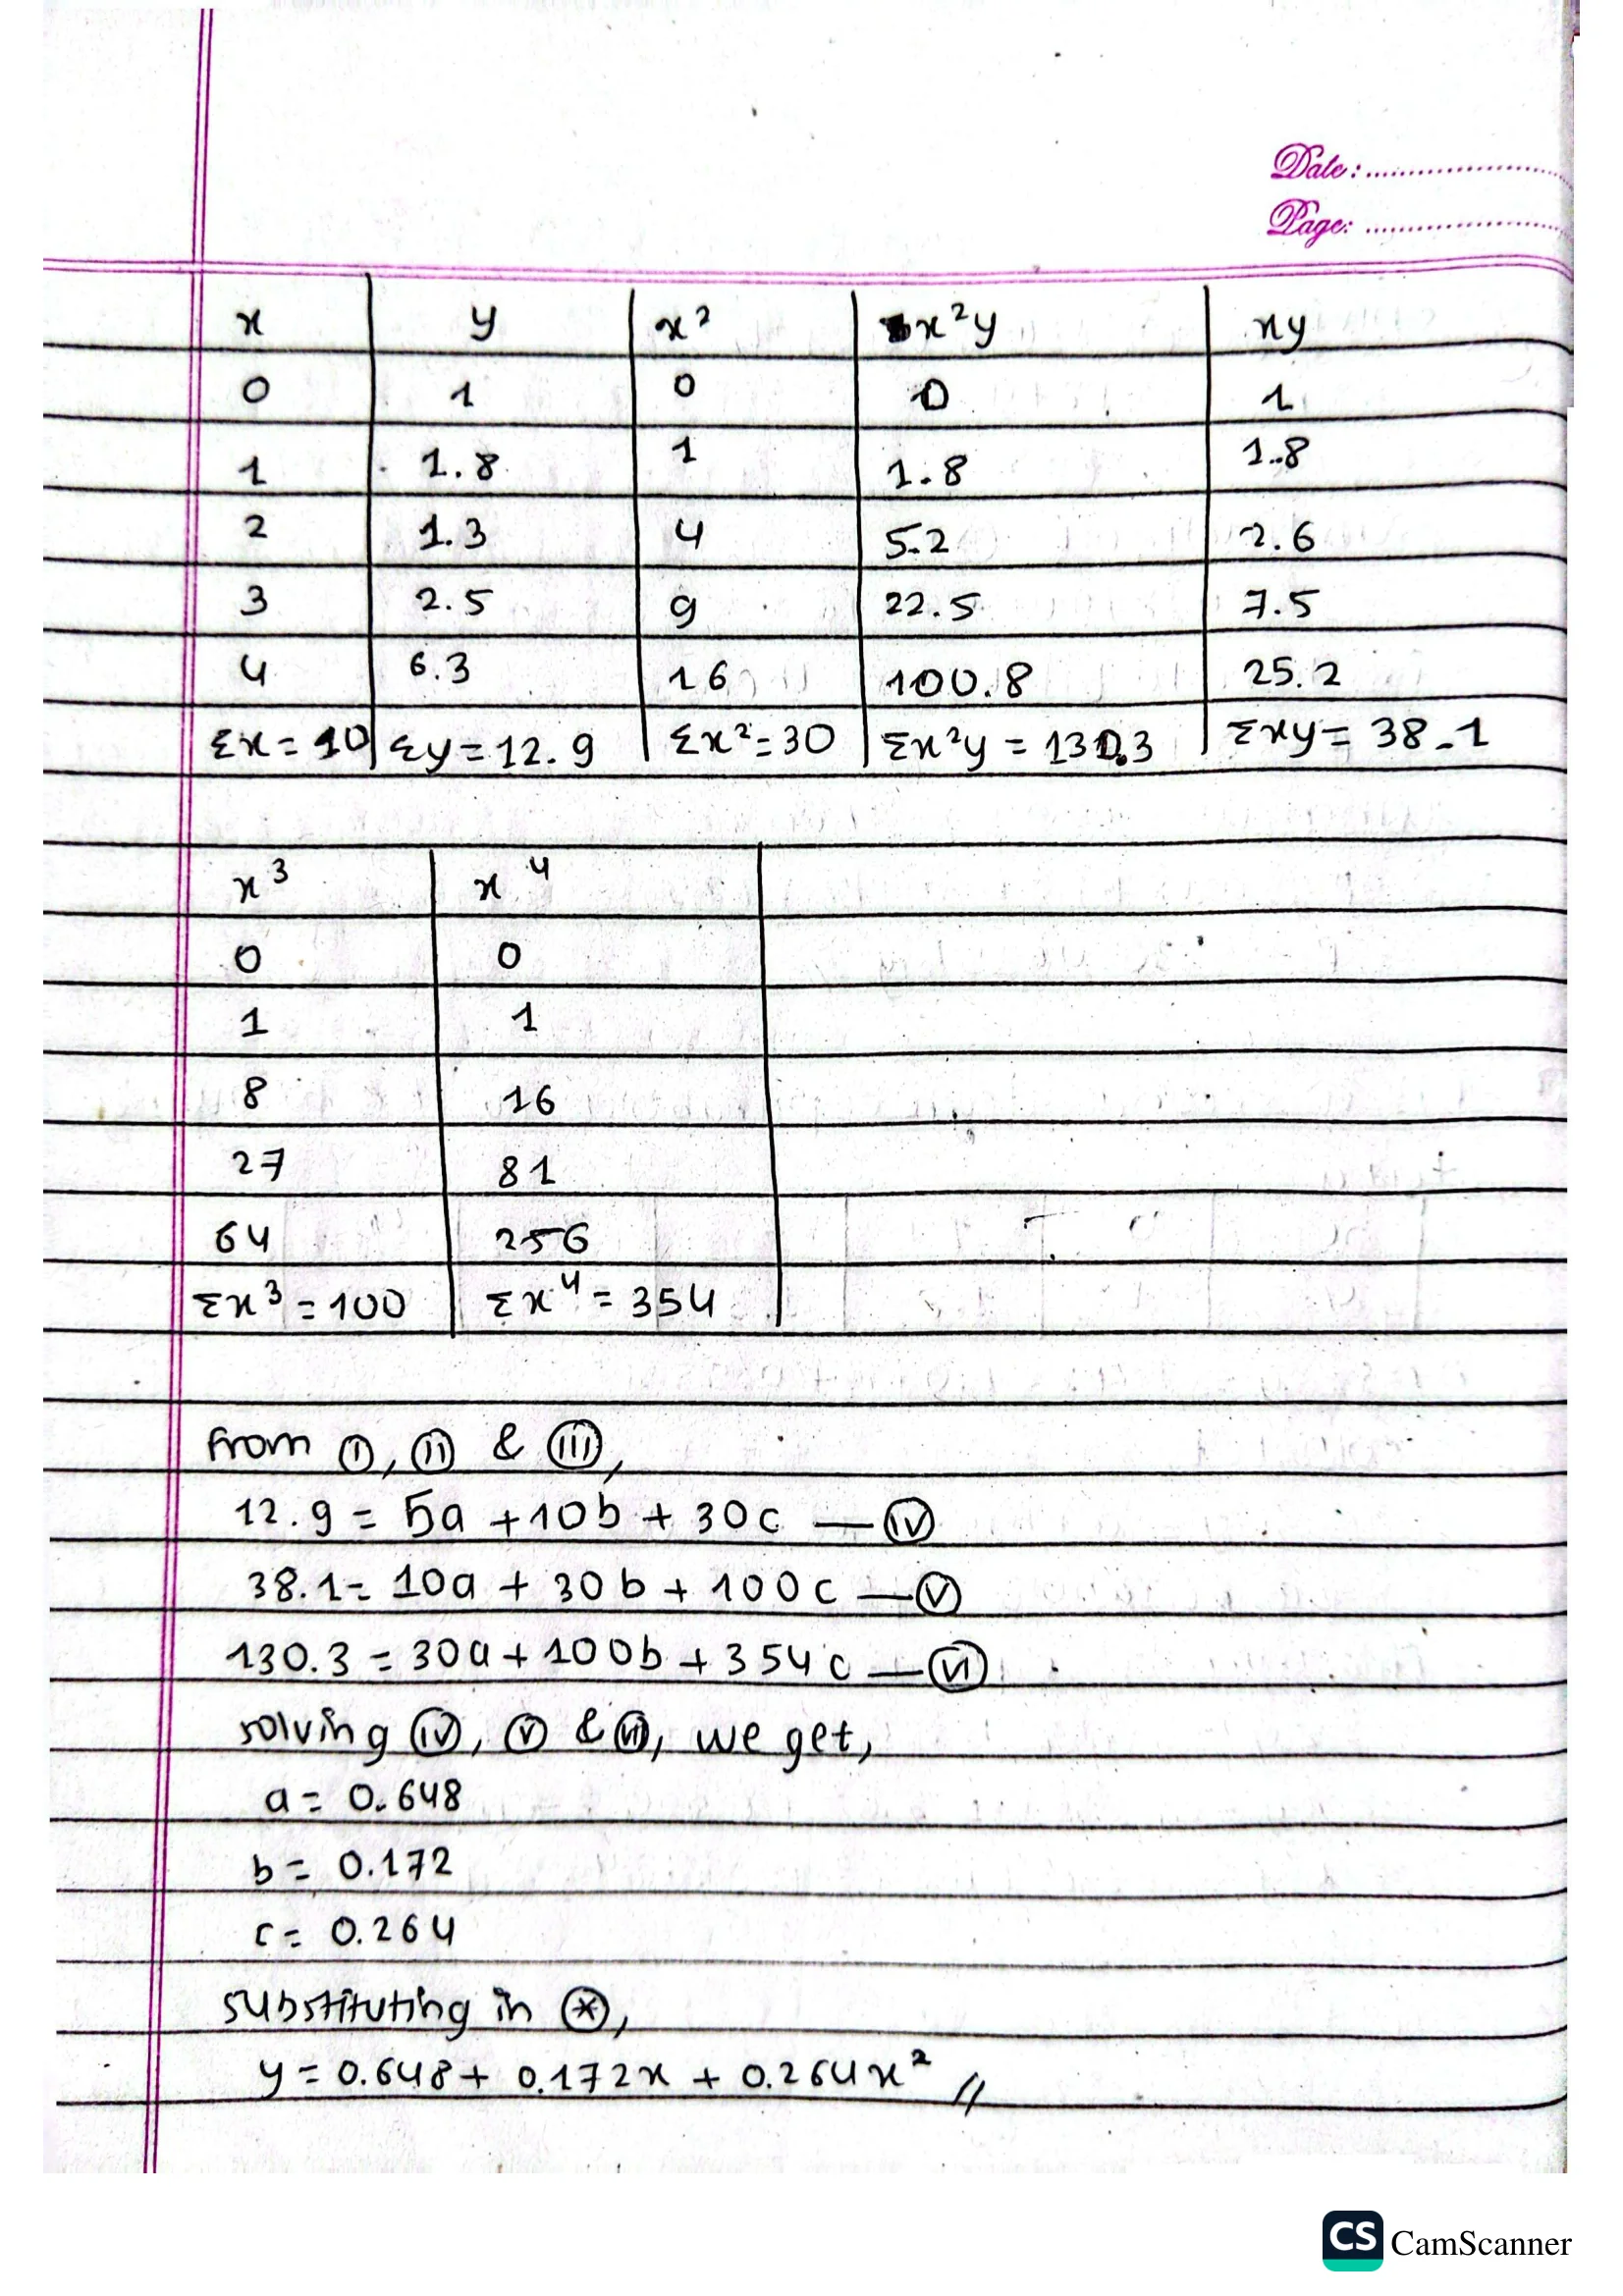 Date: ..................
Page: ..................
x y x² x²y xy
0 1 0 0 1
1 1.8 1 1.8 1.8
2 1.3 4 5.2 2.6
3 2.5 9 22.5 7.5
4 6.3 16 100.8 25.2
Σx = 10 Σy = 12.9 Σx² = 30 Σx²y = 130.3 Σxy = 38.1
x³ x⁴
0 0
1 1
8 16
27 81
64 256
Σx³ = 100 Σx⁴ = 354
From (i), (ii) & (iii),
12.9 = 5a + 10b + 30c — (iv)
38.1 = 10a + 30b + 100c — (v)
130.3 = 30a + 100b + 354c — (vi)
solving (iv), (v) & (vi), we get,
a = 0.648
b = 0.172
c = 0.264
substituting in (*),
y = 0.648 + 0.172x + 0.264x² //
CS CamScanner